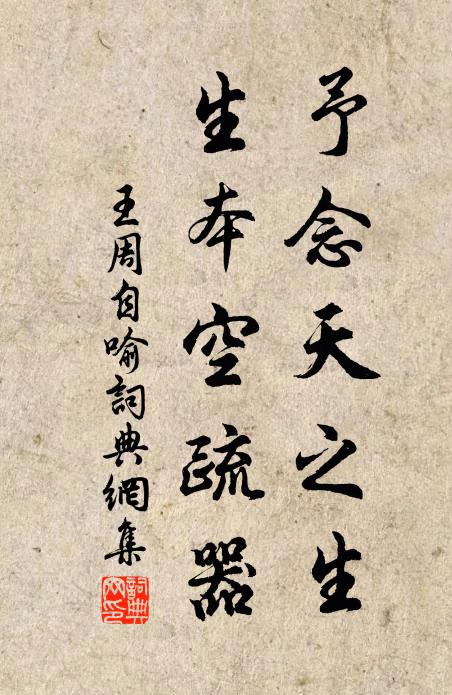 予念天之生
生本空疏器
王周自喻詞典網集
詞典網印